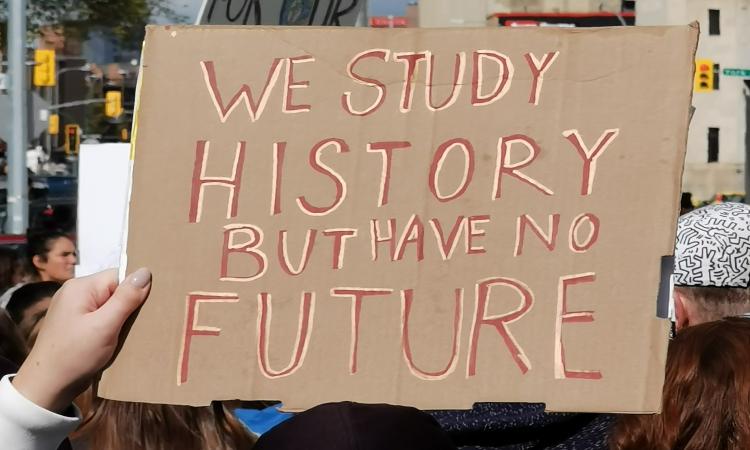 FOR OUR
WE STUDY
HISTORY
BUT HAVE NO
FUTURE